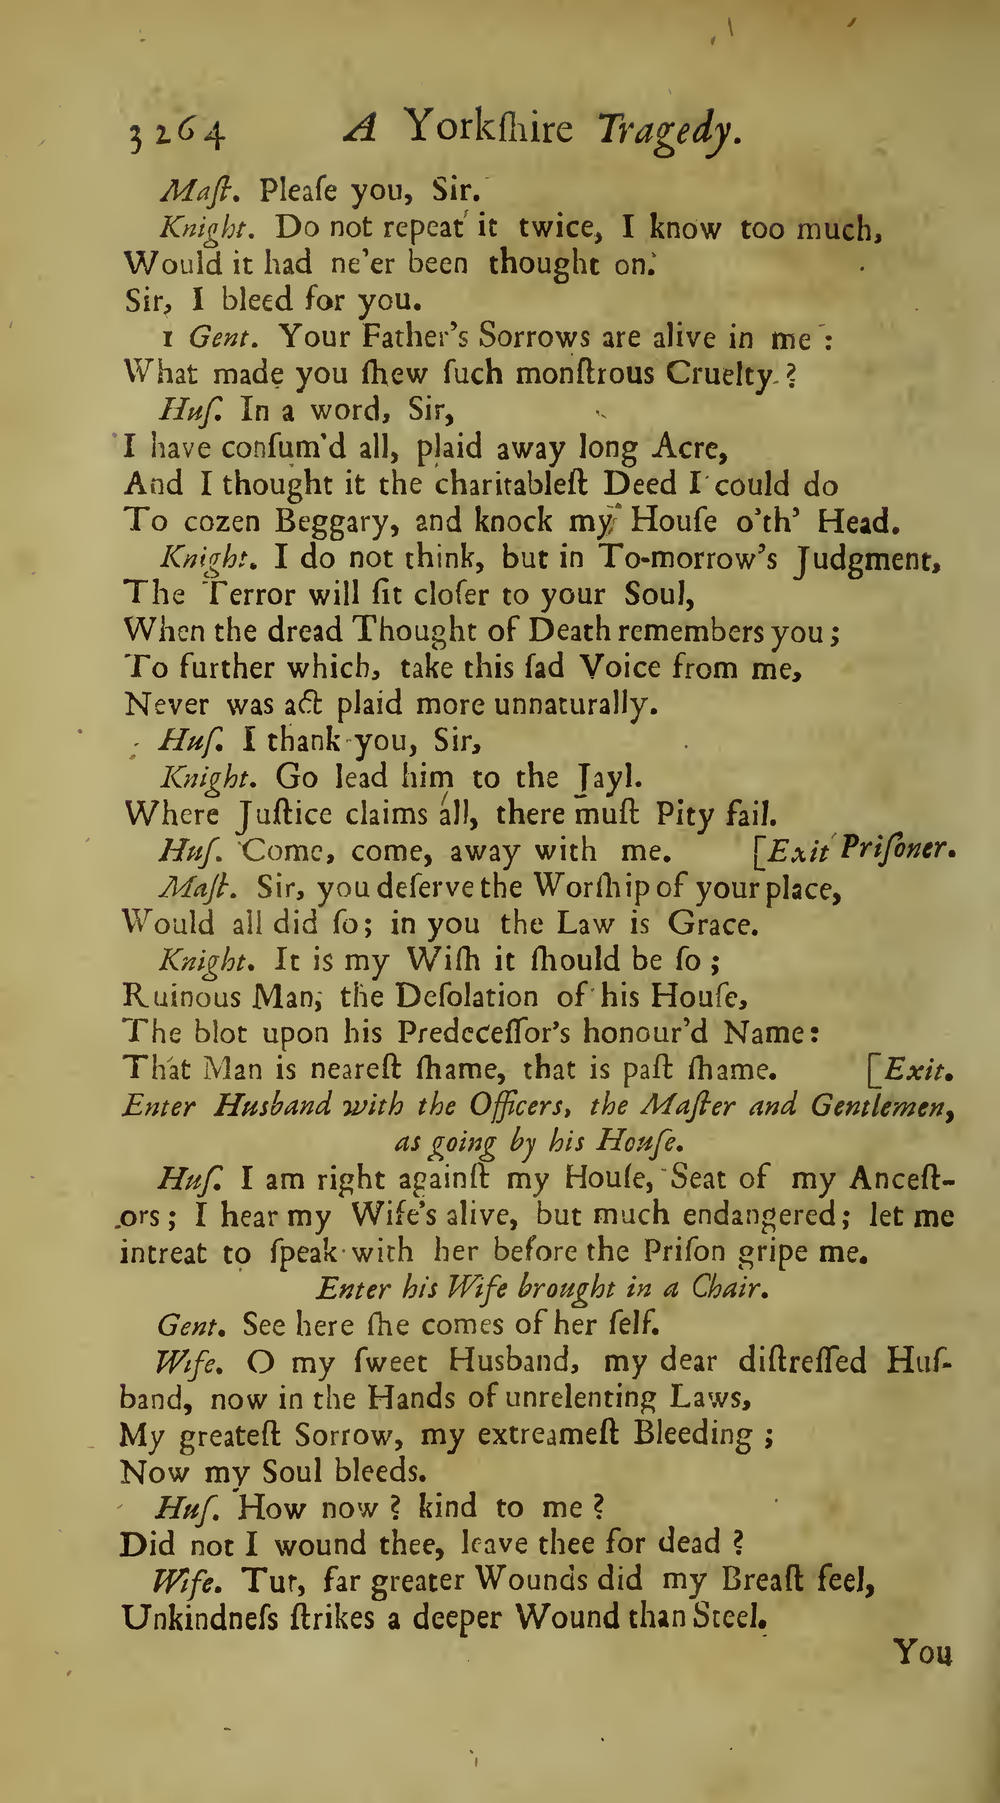 3264 A Yorkſhire Tragedy.
Maſt. Pleaſe you, Sir.
Knight. Do not repeat it twice, I know too much,
Would it had ne'er been thought on.
Sir, I bleed for you.
1 Gent. Your Father's Sorrows are alive in me :
What made you ſhew ſuch monſtrous Cruelty ?
Huſ. In a word, Sir,
I have conſum'd all, plaid away long Acre,
And I thought it the charitableſt Deed I could do
To cozen Beggary, and knock my Houſe o'th' Head.
Knight. I do not think, but in To-morrow's Judgment,
The Terror will ſit cloſer to your Soul,
When the dread Thought of Death remembers you ;
To further which, take this ſad Voice from me,
Never was act plaid more unnaturally.
Huſ. I thank you, Sir,
Knight. Go lead him to the Jayl.
Where Juſtice claims all, there muſt Pity fail.
Huſ. Come, come, away with me. [Exit Priſoner.
Maſt. Sir, you deſerve the Worſhip of your place,
Would all did ſo; in you the Law is Grace.
Knight. It is my Wiſh it ſhould be ſo ;
Ruinous Man, the Deſolation of his Houſe,
The blot upon his Predeceſſor's honour'd Name:
That Man is neareſt ſhame, that is paſt ſhame. [Exit.
Enter Husband with the Officers, the Maſter and Gentlemen,
as going by his Houſe.
Huſ. I am right againſt my Houſe, Seat of my Anceſt-
ors ; I hear my Wife's alive, but much endangered; let me
intreat to ſpeak with her before the Priſon gripe me.
Enter his Wife brought in a Chair.
Gent. See here ſhe comes of her ſelf.
Wife. O my ſweet Husband, my dear diſtreſſed Huſ-
band, now in the Hands of unrelenting Laws,
My greateſt Sorrow, my extreameſt Bleeding ;
Now my Soul bleeds.
Huſ. How now ? kind to me ?
Did not I wound thee, leave thee for dead ?
Wife. Tut, far greater Wounds did my Breaſt feel,
Unkindneſs ſtrikes a deeper Wound than Steel.
You